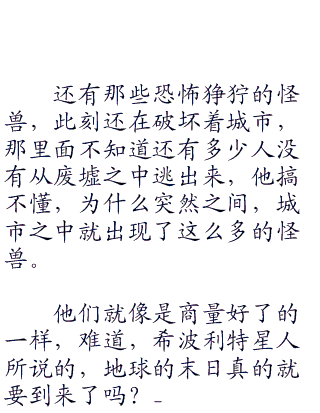 还有那些恐怖狰狞的怪
兽，此刻还在破坏着城市，
那里面不知道还有多少人没
有从废墟之中逃出来，他搞
不懂，为什么突然之间，城
市之中就出现了这么多的怪
兽。
他们就像是商量好了的
一样，难道，希波利特星人
所说的，地球的末日真的就
要到来了吗？_